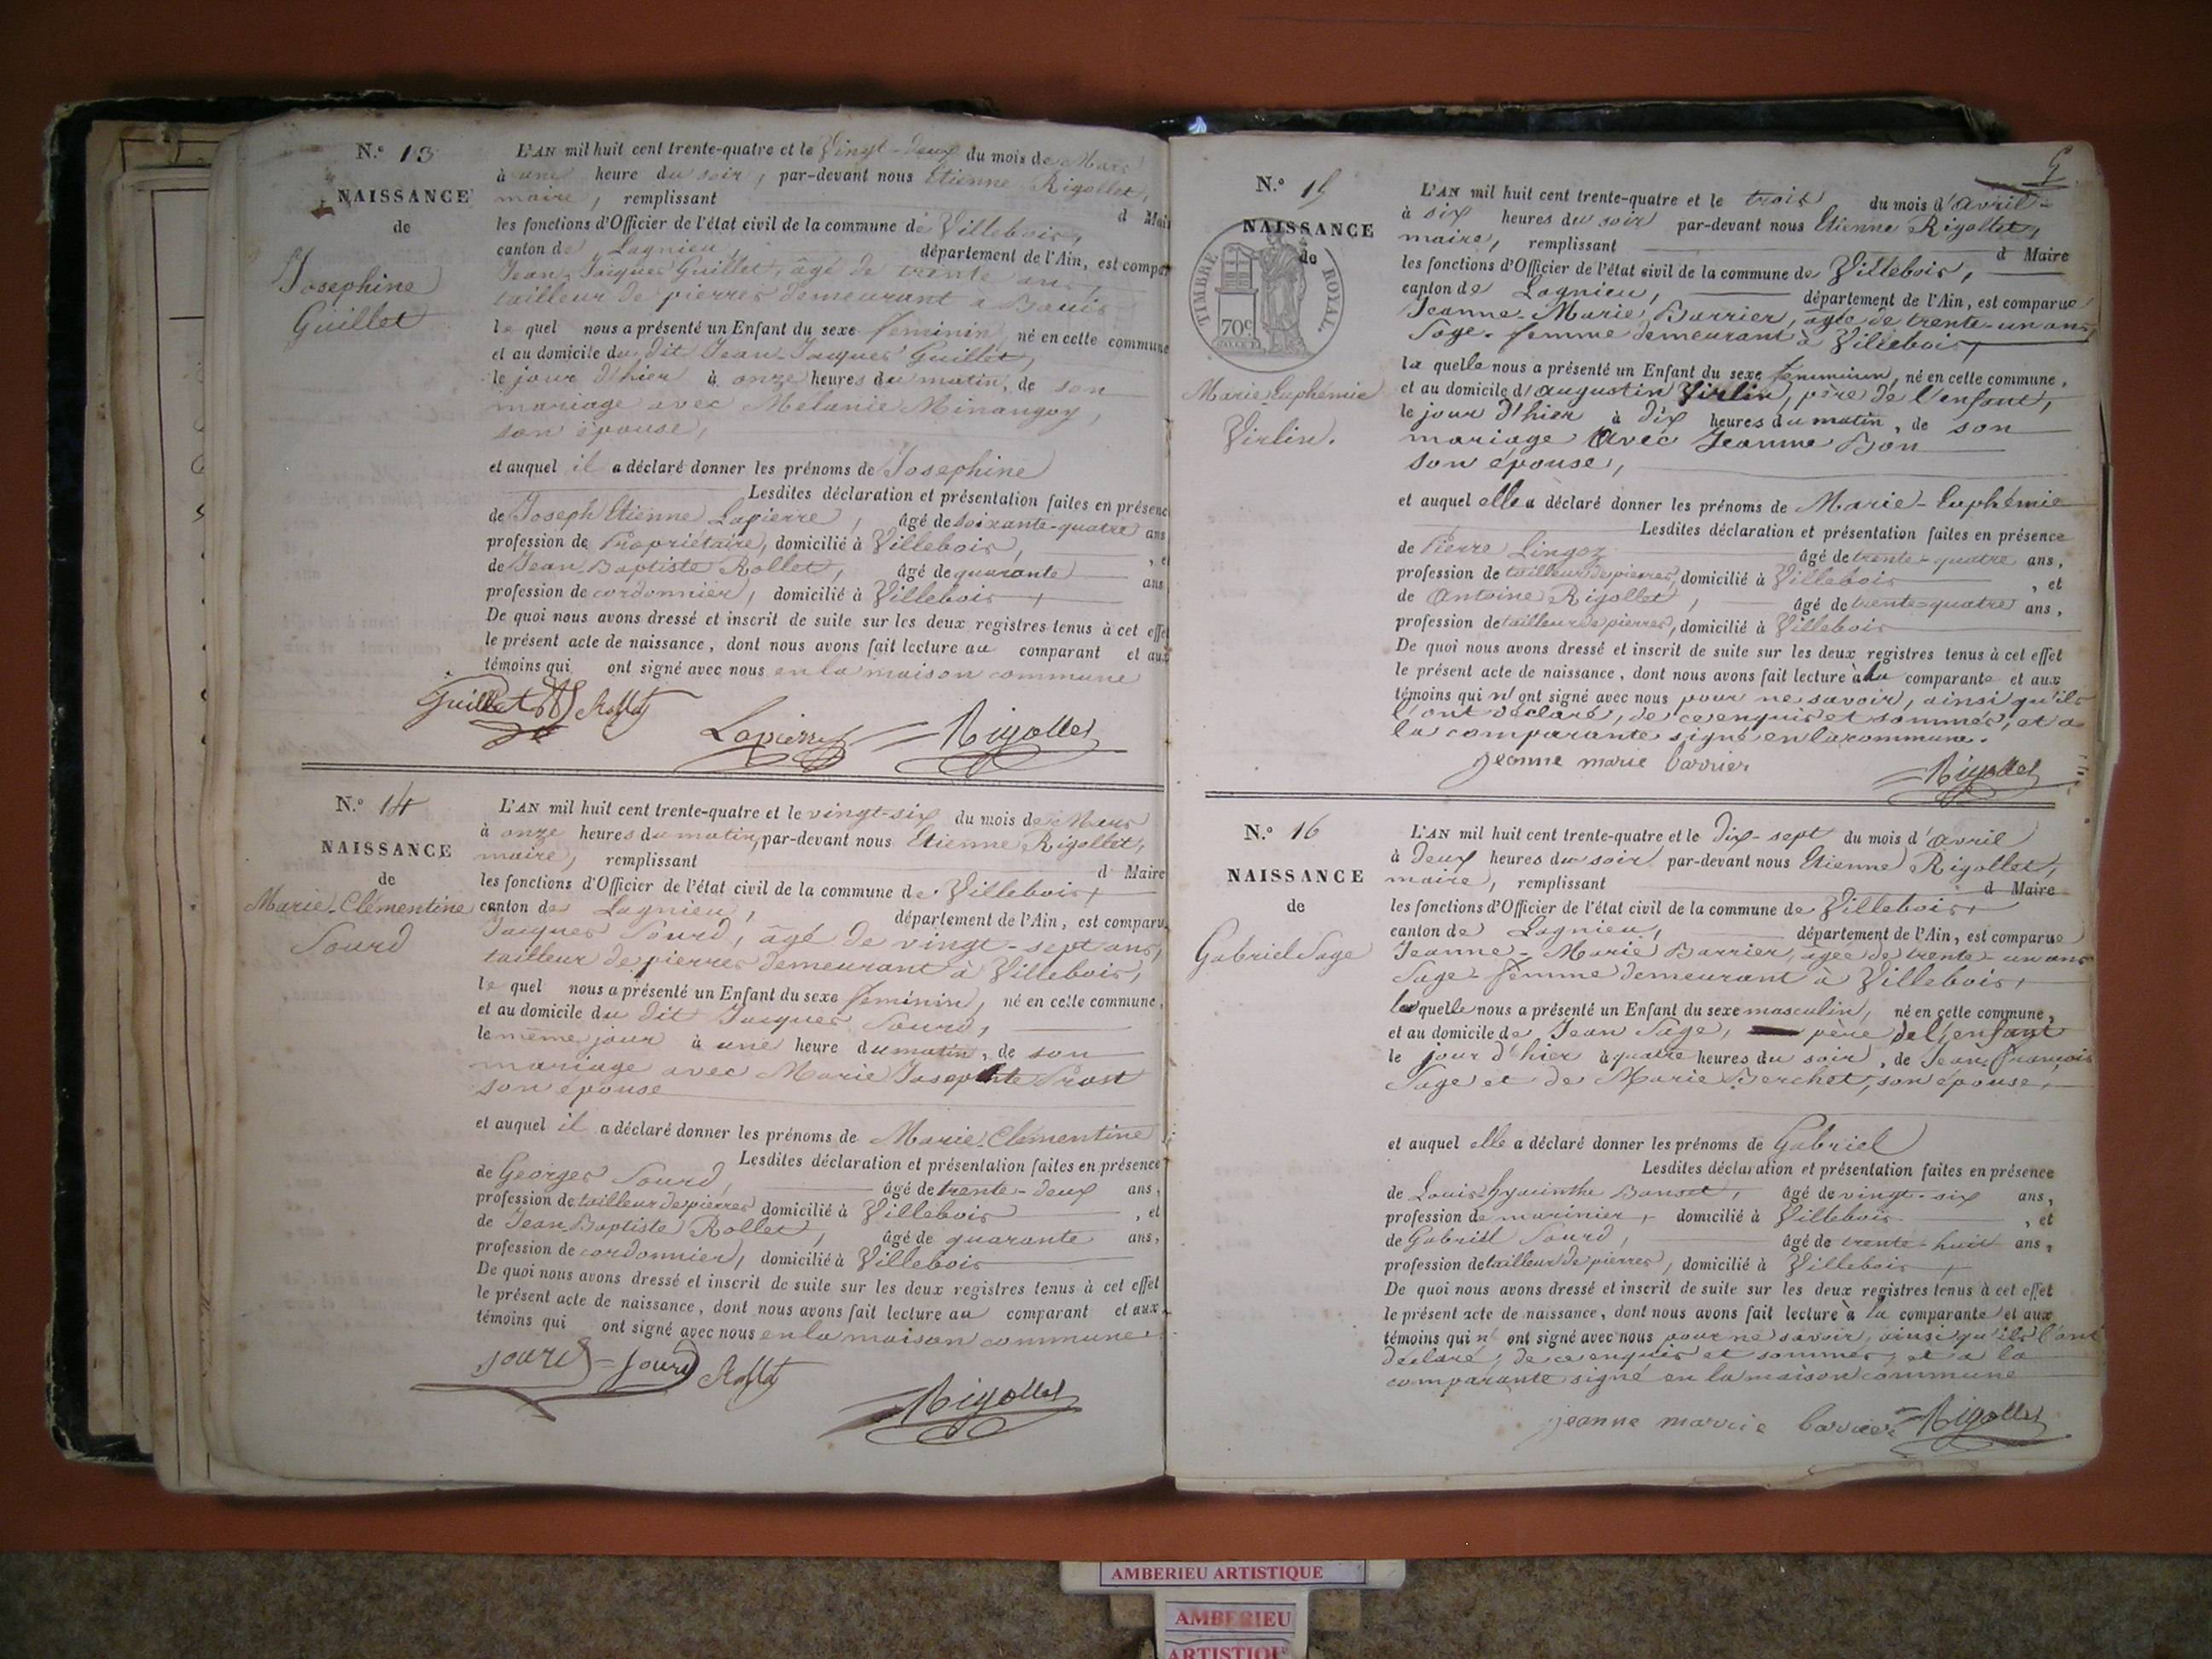 N.° 13
NAISSANCE
de
Josephine
Guillet
L'AN mil huit cent trente-quatre et le Vingt-deux du mois de Mars
à une heure du soir, par-devant nous Etienne Rigollet,
maire, remplissant d Mai
les fonctions d'Officier de l'état civil de la commune de Villebois,
canton de Lagnieu, département de l'Ain, est compa
Jean-Jacques Guillet, âgé de trente ans,
tailleur de pierres demeurant a Bouis
le quel nous a présenté un Enfant du sexe féminin, né en cette commune
et au domicile du dit Jean-Jacques Guillet,
le jour d'hier à onze heures du matin, de son
mariage avec Melanie Minangoy,
son épouse,
et auquel il a déclaré donner les prénoms de Josephine
Lesdites déclaration et présentation faites en présenc
de Joseph Etienne Lapierre, âgé de soixante-quatre ans
profession de Propriétaire, domicilié à Villebois, , et
de Jean-Baptiste Rollet, âgé de quarante ans
profession de cordonnier, domicilié à Villebois
De quoi nous avons dressé et inscrit de suite sur les deux registres tenus à cet effet
le présent acte de naissance, dont nous avons fait lecture au comparant et aux
témoins qui ont signé avec nous en la maison commune
Guillet Rollet Lapierre Rigollet
N.° 14
NAISSANCE
de
Marie-Clémentine
Sourd
L'AN mil huit cent trente-quatre et le vingt-six du mois de Mars
à onze heures du matin, par-devant nous Etienne Rigollet,
maire, remplissant d Maire
les fonctions d'Officier de l'état civil de la commune de Villebois,
canton de Lagnieu, département de l'Ain, est comparu
Jacques Sourd, âgé de vingt-sept ans,
tailleur de pierres demeurant à Villebois,
le quel nous a présenté un Enfant du sexe féminin, né en cette commune,
et au domicile du dit Jacques Sourd,
le même jour à une heure du matin, de son
mariage avec Marie Josephte Prost
son épouse
et auquel il a déclaré donner les prénoms de Marie-Clémentine
Lesdites déclaration et présentation faites en présence
de Georges Sourd, âgé de trente-deux ans,
profession de tailleur de pierres domicilié à Villebois , et
de Jean-Baptiste Rollet, âgé de quarante ans,
profession de cordonnier, domicilié à Villebois
De quoi nous avons dressé et inscrit de suite sur les deux registres tenus à cet effet
le présent acte de naissance, dont nous avons fait lecture au comparant et aux
témoins qui ont signé avec nous en la maison commune
sourd = sourd Rollet
Rigollet
N.° 15
NAISSANCE
de
TIMBRE ROYAL
70c
Marie-Euphémie
Virlin.
L'AN mil huit cent trente-quatre et le trois du mois d'avril
à six heures du soir par-devant nous Etienne Rigollet,
maire, remplissant d Maire
les fonctions d'Officier de l'état civil de la commune de Villebois,
canton de Lagnieu, département de l'Ain, est comparue
Jeanne-Marie Barrier, âgée de trente-un ans,
Sage-femme demeurant à Villebois,
la quelle nous a présenté un Enfant du sexe féminin, né en cette commune,
et au domicile d'augustin Virlin, père de l'enfant,
le jour d'hier à dix heures du matin, de son
mariage avec Jeanne Bon
son épouse,
et auquel elle a déclaré donner les prénoms de Marie-Euphémie
Lesdites déclaration et présentation faites en présence
de Pierre Lingoz âgé de trente-quatre ans,
profession de tailleur de pierres, domicilié à Villebois , et
de Antoine Rigollet, âgé de trente-quatre ans,
profession de tailleur de pierres, domicilié à Villebois
De quoi nous avons dressé et inscrit de suite sur les deux registres tenus à cet effet
le présent acte de naissance, dont nous avons fait lecture à la comparante et aux
témoins qui n'ont signé avec nous pour ne savoir, ainsi qu'ils
l'ont déclaré, de ce enquis et sommés, et a
la comparante signé en la commune.
jeanne marie barrier Rigollet
N.° 16
NAISSANCE
de
Gabriel Sage
L'AN mil huit cent trente-quatre et le dix-sept du mois d'avril
à deux heures du soir par-devant nous Etienne Rigollet,
maire, remplissant d Maire
les fonctions d'Officier de l'état civil de la commune de Villebois,
canton de Lagnieu, département de l'Ain, est comparue
Jeanne-Marie Barrier, âgée de trente-un ans
Sage-femme demeurant à Villebois,
laquelle nous a présenté un Enfant du sexe masculin, né en cette commune,
et au domicile de Jean Sage, père de l'enfant
le jour d'hier à quatre heures du soir, de Jean-François
Sage et de Marie Berchet, son épouse,
et auquel elle a déclaré donner les prénoms de Gabriel
Lesdites déclaration et présentation faites en présence
de Louis-hyacinthe Banset, âgé de vingt-six ans,
profession de marinier, domicilié à Villebois , et
de Gabriel Sourd, âgé de trente-huit ans,
profession de tailleur de pierres, domicilié à Villebois,
De quoi nous avons dressé et inscrit de suite sur les deux registres tenus à cet effet
le présent acte de naissance, dont nous avons fait lecture à la comparante et aux
témoins qui n' ont signé avec nous pour ne savoir, ainsi qu'ils l'ont
déclaré, de ce enquis et sommés, et a la
comparante signé en la maison commune
jeanne marrie barrier Rigollet
AMBERIEU ARTISTIQUE
AMBERIEU
ARTISTIQUE